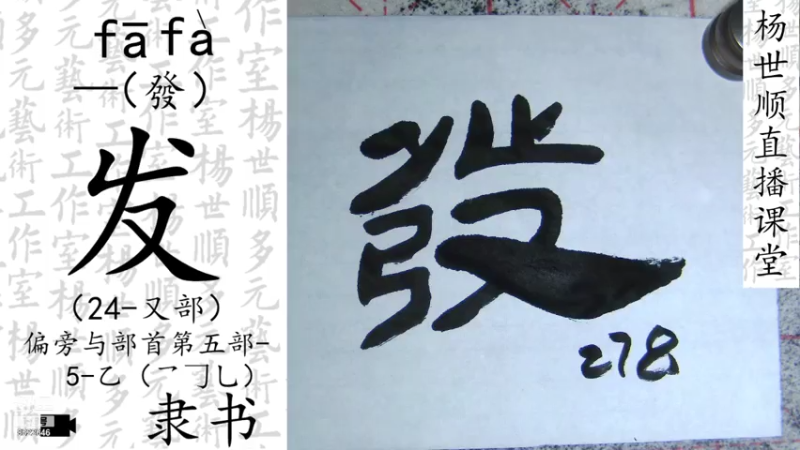 fā fà
一（發）
发
（24-又部）
偏旁与部首第五部-
5-乙（乛㇆乚）
隶书
發
278
杨世顺直播课堂
杨世順多元藝術工作室